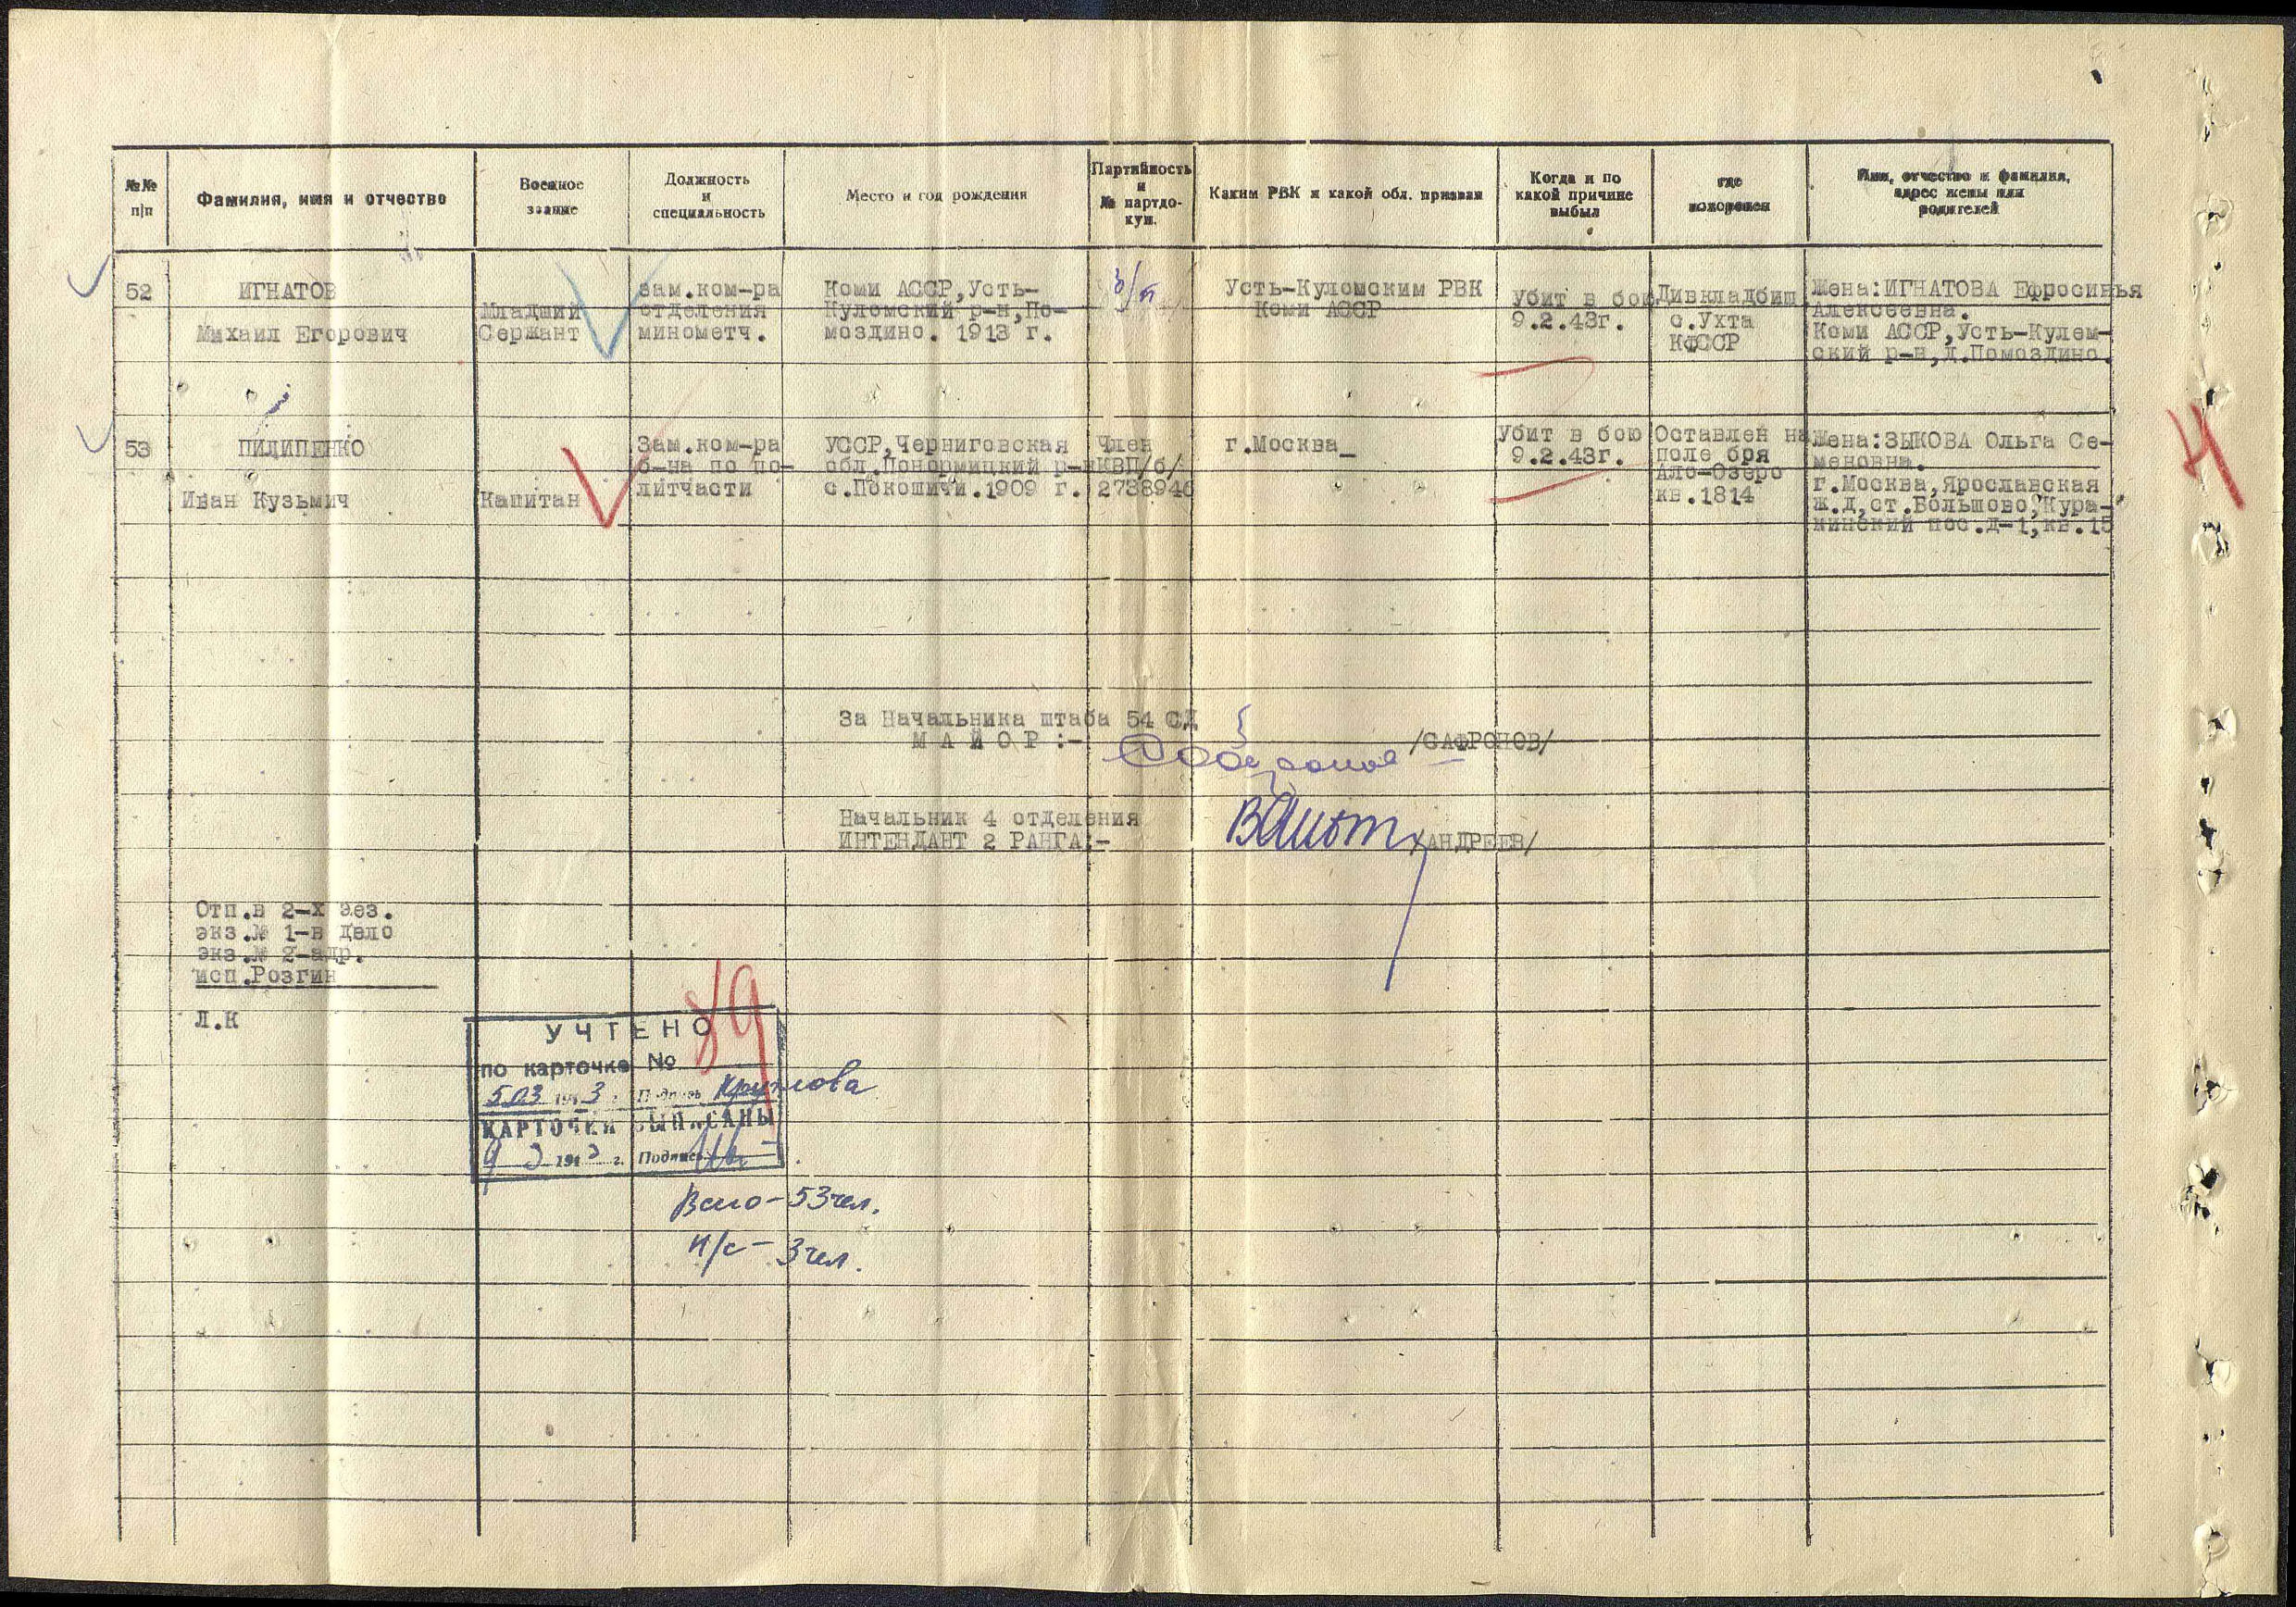 №№ п/п
Фамилия, имя и отчество
Военное звание
Должность и специальность
Место и год рождения
Партийность и № партдо-кум.
Каким РВК и какой обл. призван
Когда и по какой причине выбыл
где похоронен
Имя, отчество и фамилия, адрес жены или родителей
52
ИГНАТОВ
Михаил Егорович
Младший
Сержант
зам.ком-ра
отделения
минометч.
Коми АССР,Усть-
Куломский р-н,По-
моздино. 1913 г.
б/п
Усть-Куломским РВК
Коми АССР
Убит в бою
9.2.43г.
Дивкладбищ
с.Ухта
КФССР
Жена:ИГНАТОВА Ефросинья
Алексеевна.
Коми АССР,Усть-Кулем-
ский р-н,д.Помоздино.
53
ПИДИПЕНКО
Иван Кузьмич
Капитан
Зам.ком-ра
б-на по по-
литчасти
УССР,Черниговская
обл.Понормицкий р-н
с.Покошичи.1909 г.
Член
КВП/б/
2738946
г.Москва_
Убит в бою
9.2.43г.
Оставлен на
поле бря
Ало-Озеро
кв.1814
Жена:ЗЫКОВА Ольга Се-
меновна.
г.Москва,Ярославская
ж.д,ст.Большово,Кура-
минский пос.д-1,кв.15
4
За Начальника штаба 54 СД
М А Й О Р :-
/САФРОНОВ/
Начальник 4 отделения
ИНТЕНДАНТ 2 РАНГА:-
/АНДРЕЕВ/
Отп.в 2-х эез.
экз.№ 1-в дело
экз.№ 2-адр.
исп.Розгин
Л.К
УЧТЕНО
по карточке №
5.03 1943 г. Подпись Круглова
КАРТОЧКИ ВЫПИСАНЫ
9 3 1943 г. Подпись
Всего-53чел.
н/с - 3чел.